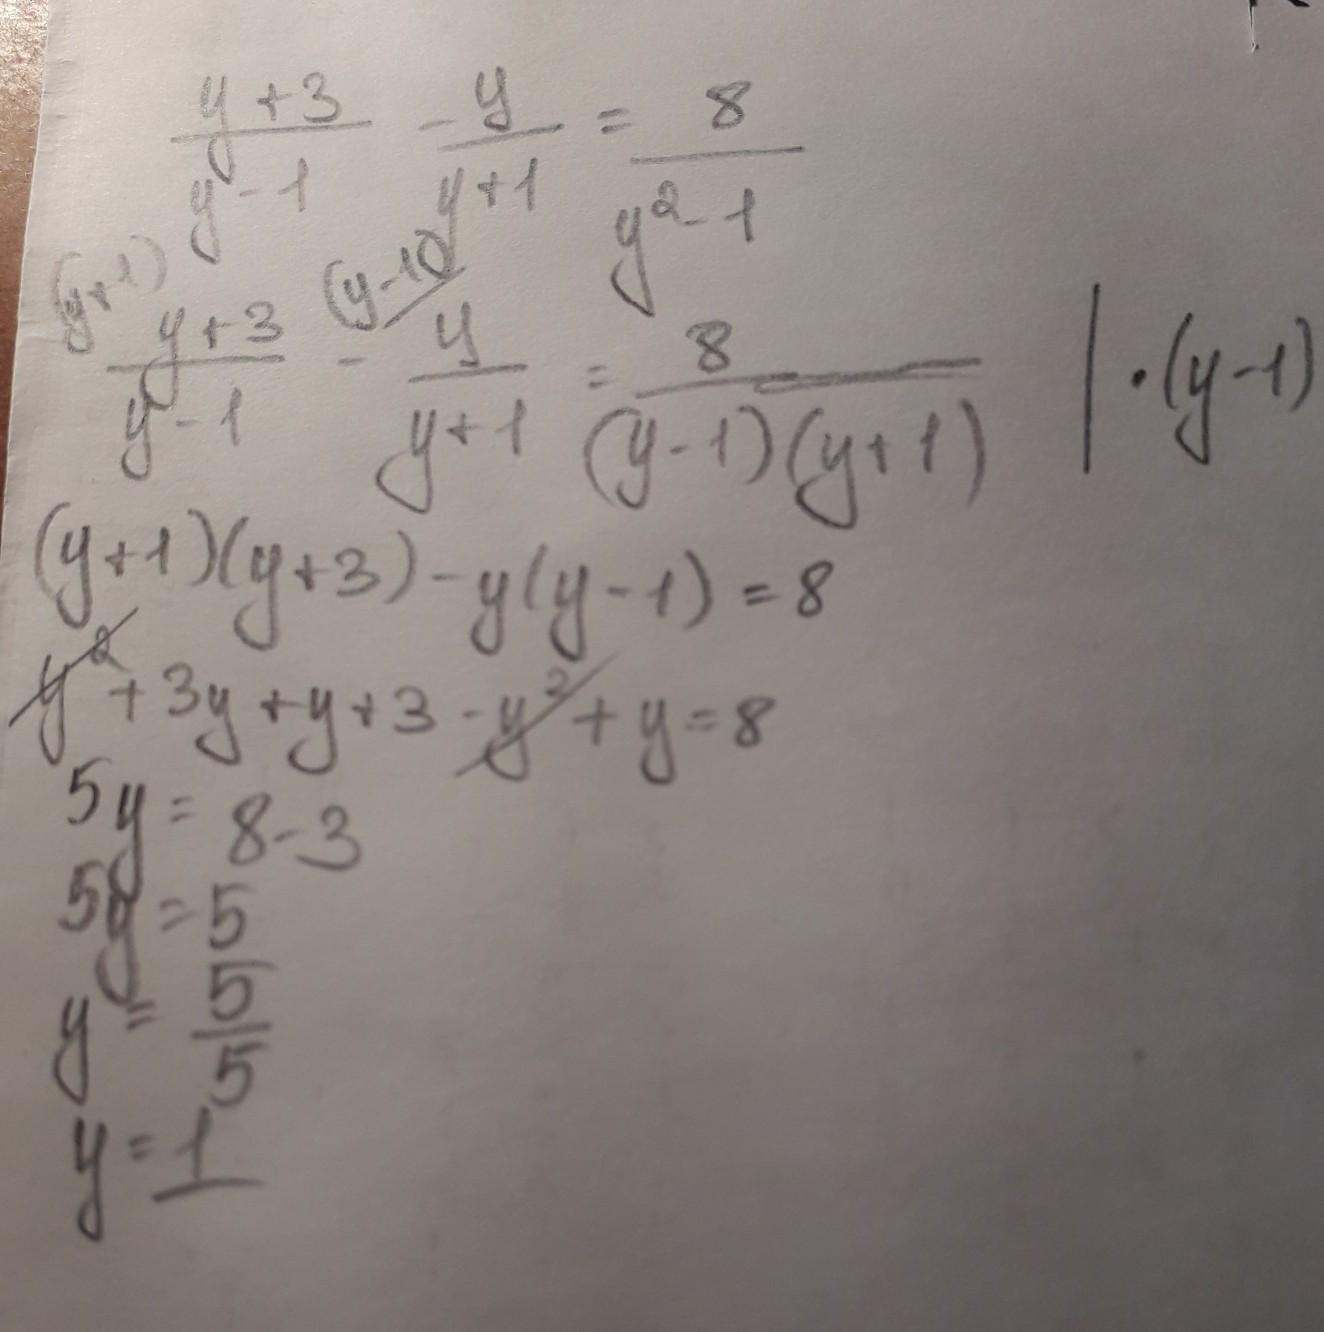 (y+3)/(y-1) - y/(y+1) = 8/(y²-1)
(y+1) (y-1)
(y+3)/(y-1) - y/(y+1) = 8/((y-1)(y+1)) | · (y-1)
(y+1)(y+3) - y(y-1) = 8
y² + 3y + y + 3 - y² + y = 8
5y = 8-3
5y = 5
y = 5/5
y = 1